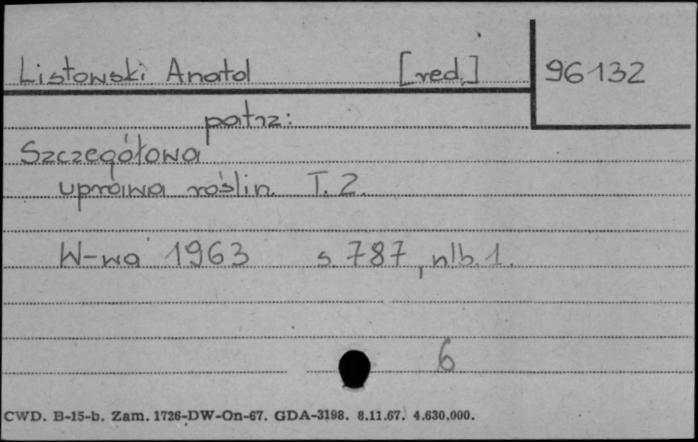 Listowski Anatol [red.] 96132
patrz:
Szczegółowa
uprawa roślin. T. 2.
W-wa 1963 s 787, nlb. 1.
6
CWD. B-15-b. Zam. 1726-DW-On-67. GDA-3198. 8.11.67. 4.630.000.